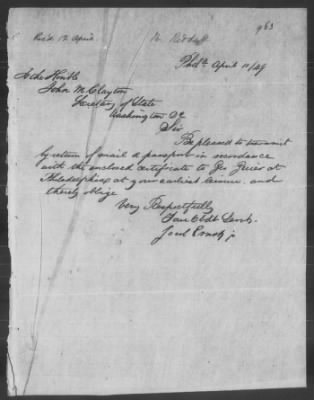 Rec'd 12 April
963
Phila April 11/49
To the Honble
John M. Clayton
Secretary of State
Washington DC
Sir
Be pleased to transmit
by return of mail a passport in accordance
with the enclosed certificate to Geo
Philadelphia at your earliest leisure and
thereby oblige
Very Respectfully
Your Obdt Servt